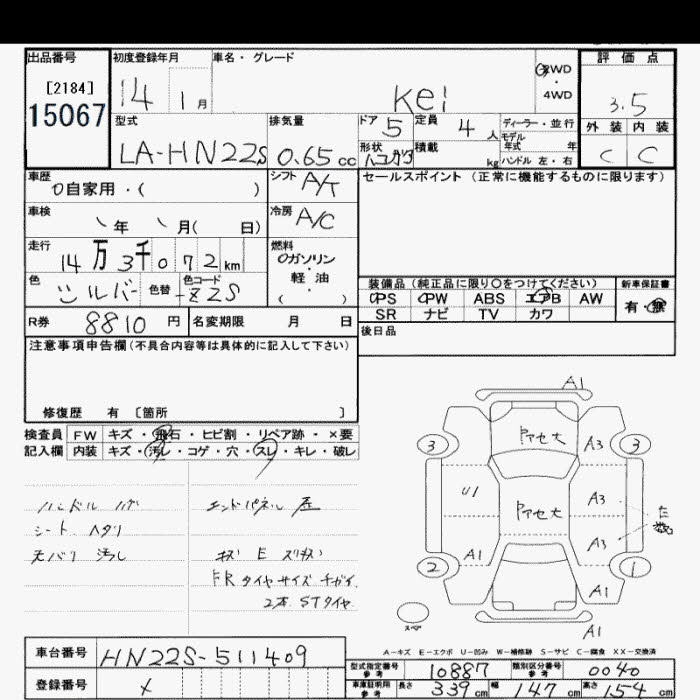 出品番号
[2184]
15067
初度登録年月
14 1月
車名・グレード
Kei
2WD
・
4WD
評価点
3.5
外装 内装
C C
型式
LA-HN22S
排気量
0.65cc
ドア
5
定員
4人
形状
ハコガタ
積載
kg
ディーラー・並行
モデル
年式 年
ハンドル 左・右
車歴
自家用・( )
シフト
A/T
セールスポイント (正常に機能するものに限ります)
車検
年 月( 日)
冷房
A/C
走行
14万3千072km
燃料
ガソリン
・
軽油
( )
色
シルバー
色替
色コード
Z2S
装備品 (純正品に限り○をつけてください)
新車保証書
PS PW ABS エアB AW
有・無
SR ナビ TV カワ
R券
8810円
名変期限 月 日
後日品
注意事項申告欄(不具合内容等は具体的に記入して下さい)
修復歴 有 〔箇所 〕
検査員
記入欄
FW キズ・飛石・ヒビ割・リペア跡・×要
内装 キズ・汚レ・コゲ・穴・スレ・キレ・破レ
ハンドル ハゲ
シート ヘタリ
天バリ 汚れ
エンドパネル 歪
キズ E スリキズ
FRタイヤサイズチガイ
2本 STタイヤ
A1
3
3
Pアセ大
A3
U1
Pアセ大
A3
A3
A1
2
1
A1
スペア
A1
A-キズ E-エクボ U-凹み W-補修跡 S-サビ C-腐食 XX-交換済
車台番号
HN22S-511409
登録番号
型式指定番号
参考
10887
類別区分番号
参考
0040
車庫証明用
参考
長さ 339cm 幅 147cm 高さ 154cm